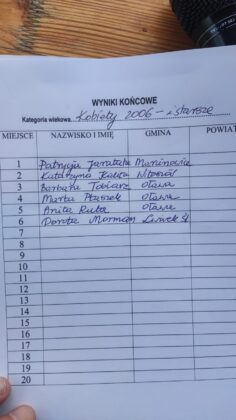 WYNIKI KOŃCOWE
Kategoria wiekowa Kobiety 2006 - i starsze
MIEJSCE NAZWISKO I IMIĘ GMINA POWIAT
1 Patrycja
2 Katarzyna
3 Barbara Tobiarz Oława
4 Marta Ptaszek Oława
5 Anita Oława
6 Dorota
7
8
9
10
11
12
13
14
15
16
17
18
19
20